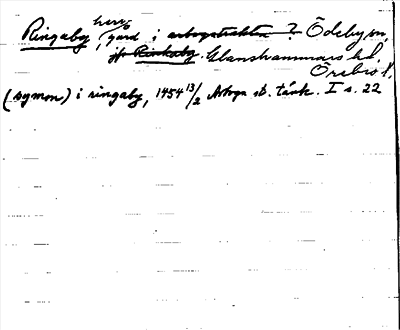 Ringaby, herrgård i arbogatrakten ? Ödeby sn,
jfr Rinkaby. Glanshammars hd,
Örebro l.
(symon) i ringaby, 1454 13/2 Arboga st. tänk. I s. 22